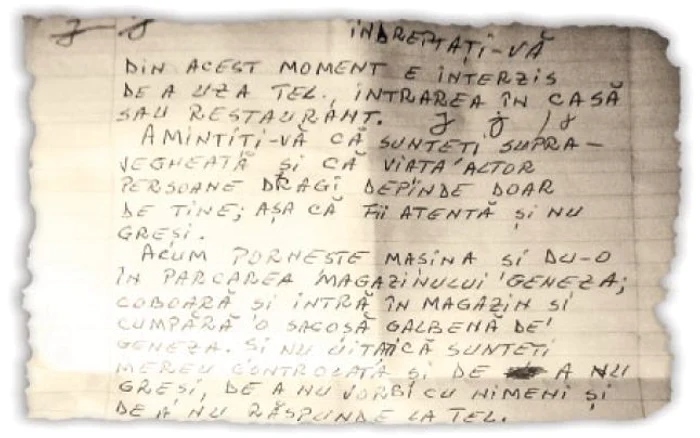 ÎNDREPTAȚI-VĂ
DIN ACEST MOMENT E INTERZIS
DE A UZA TEL., INTRAREA ÎN CASĂ
SAU RESTAURANT.
AMINTIȚI-VĂ CĂ SUNTEȚI SUPRA-
VEGHEATĂ ȘI CĂ VIATA ALTOR
PERSOANE DRAGI DEPINDE DOAR
DE TINE; AȘA CĂ FII ATENTĂ ȘI NU
GREȘI.
ACUM PORNESTE MASINA SI DU-O
ÎN PARCAREA MAGAZINULUI GENEZA;
COBOARĂ SI INTRĂ ÎN MAGAZIN SI
CUMPĂRĂ O SACOSĂ GALBENĂ DE
GENEZA. SI NU UITA CĂ SUNTETI
MEREU CONTROLATĂ SI DE A NU
GRESI, DE A NU VORBI CU NIMENI ȘI
DE A NU RĂSPUNDE LA TEL.